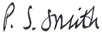 P. S. Smith